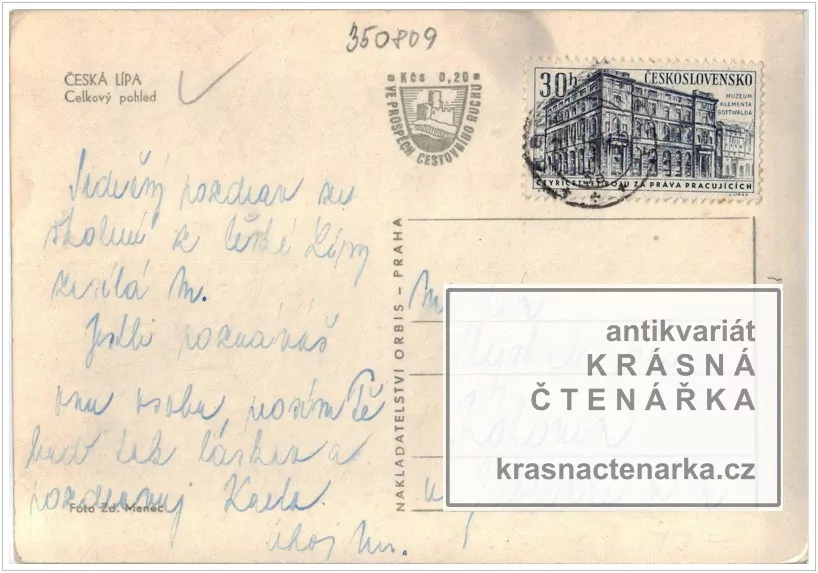 350809
ČESKÁ LÍPA
Celkový pohled
Kčs 0,20
VE PROSPĚCH CESTOVNÍHO RUCHU
30h
ČESKOSLOVENSKO
MUZEUM
KLEMENTA
GOTTWALDA
ČTYŘICET BOJŮ ZA PRÁVA PRACUJÍCÍCH
Srdečný pozdrav ze
školení z České Lípy
zasílá M.
Jestli poznáváš
onu osobu, prosím Tě
buď tak láskav a
pozdravuj Karla.
Ahoj
Foto Zd. Menec
NAKLADATELSTVÍ ORBIS – PRAHA
antikvariát
KRÁSNÁ
ČTENÁŘKA
krasnactenarka.cz